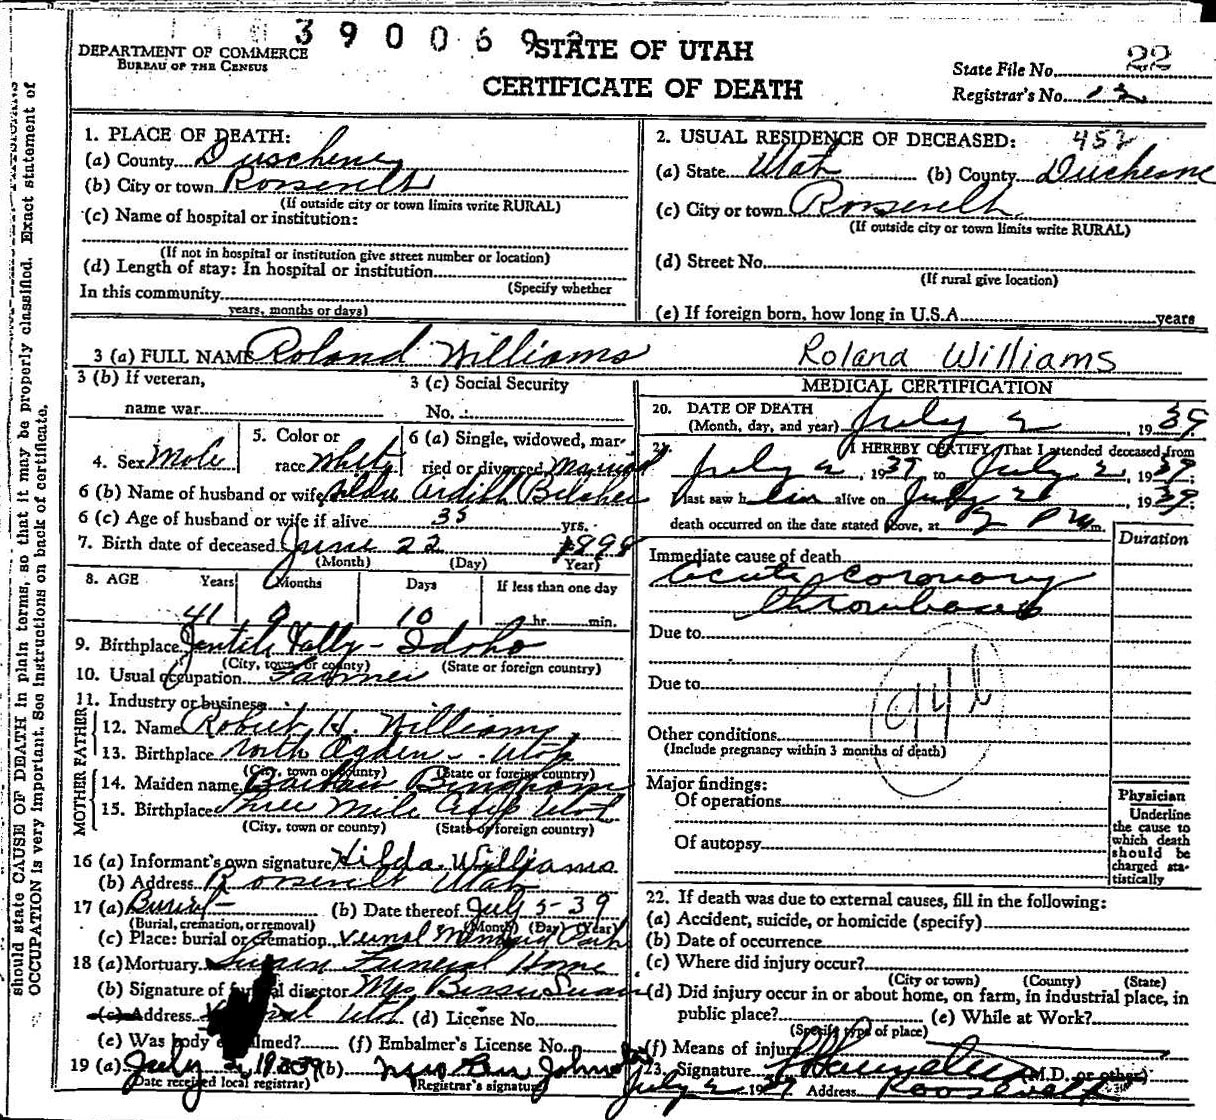 3 9 0 0 6 9
DEPARTMENT OF COMMERCE
BUREAU OF THE CENSUS
STATE OF UTAH
CERTIFICATE OF DEATH
State File No. 22
Registrar's No. 12
should state CAUSE OF DEATH in plain terms, so that it may be properly classified. Exact statement of
OCCUPATION is very important. See instructions on back of certificate.
1. PLACE OF DEATH:
(a) County Duschene
(b) City or town Roosevelt
(If outside city or town limits write RURAL)
(c) Name of hospital or institution:
(If not in hospital or institution give street number or location)
(d) Length of stay: In hospital or institution
(Specify whether
In this community
years, months or days)
2. USUAL RESIDENCE OF DECEASED: 452
(a) State Utah (b) County Duchesne
(c) City or town Roosevelt
(If outside city or town limits write RURAL)
(d) Street No.
(If rural give location)
(e) If foreign born, how long in U.S.A. years
3 (a) FULL NAME Roland Williams Roland Williams
3 (b) If veteran,
name war
3 (c) Social Security
No.
4. Sex Male
5. Color or
race White
6 (a) Single, widowed, mar-
ried or divorced Married
6 (b) Name of husband or wife Ardith Belcher
6 (c) Age of husband or wife if alive 35 yrs.
7. Birth date of deceased June 22 1898
(Month) (Day) (Year)
8. AGE Years Months Days If less than one day
41 0 10 hr. min.
9. Birthplace Gentile Vally - Idaho
(City, town or county) (State or foreign country)
10. Usual occupation Farmer
11. Industry or business
FATHER
12. Name Robert H. Williams
13. Birthplace North Ogden - Utah
(City, town or county) (State or foreign country)
MOTHER
14. Maiden name Bingham
15. Birthplace Three Mile Utah
(City, town or county) (State or foreign country)
16 (a) Informant's own signature Hilda Williams
(b) Address Roosevelt Utah
17 (a) Burial (b) Date thereof July 5-39
(Burial, cremation, or removal) (Month) (Day) (Year)
(c) Place: burial or cremation Vernal Memorial Park
18 (a) Mortuary Swain Funeral Home
(b) Signature of funeral director Mrs. Bessie Swain
(c) Address Vernal Utah (d) License No.
(e) Was body embalmed? (f) Embalmer's License No.
19 (a) July 1939 (b) Mrs
(Date received local registrar) Registrar's signature
MEDICAL CERTIFICATION
20. DATE OF DEATH
(Month, day, and year) July 2, 1939
21. I HEREBY CERTIFY, That I attended deceased from
July 2, 1939 to July 2, 1939;
I last saw him alive on July 2, 1939;
death occurred on the date stated above, at P m.
Duration
Immediate cause of death
Acute coronary
thrombosis
Due to
Due to
94b
Other conditions
(Include pregnancy within 3 months of death)
Major findings:
Of operations
Of autopsy
Physician
Underline
the cause to
which death
should be
charged sta-
tistically
22. If death was due to external causes, fill in the following:
(a) Accident, suicide, or homicide (specify)
(b) Date of occurrence
(c) Where did injury occur?
(City or town) (County) (State)
(d) Did injury occur in or about home, on farm, in industrial place, in
public place? (e) While at Work?
(Specify type of place)
(f) Means of injury
23. Signature (M.D. or other)
July 2 19 Address Roosevelt